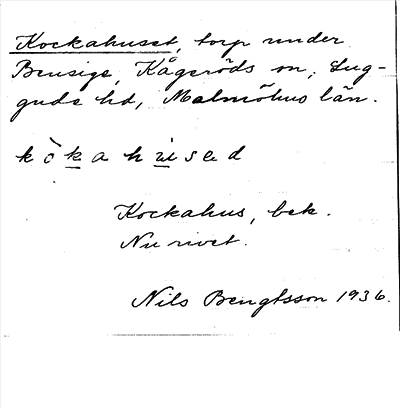 Kockahuset, torp under
Bensige, Kågeröds sn, Lug-
gude hd, Malmöhus län.
k ò k a h u s e d
Kockahus, bek.
Nu rivet.
Nils Bengtsson 1936.